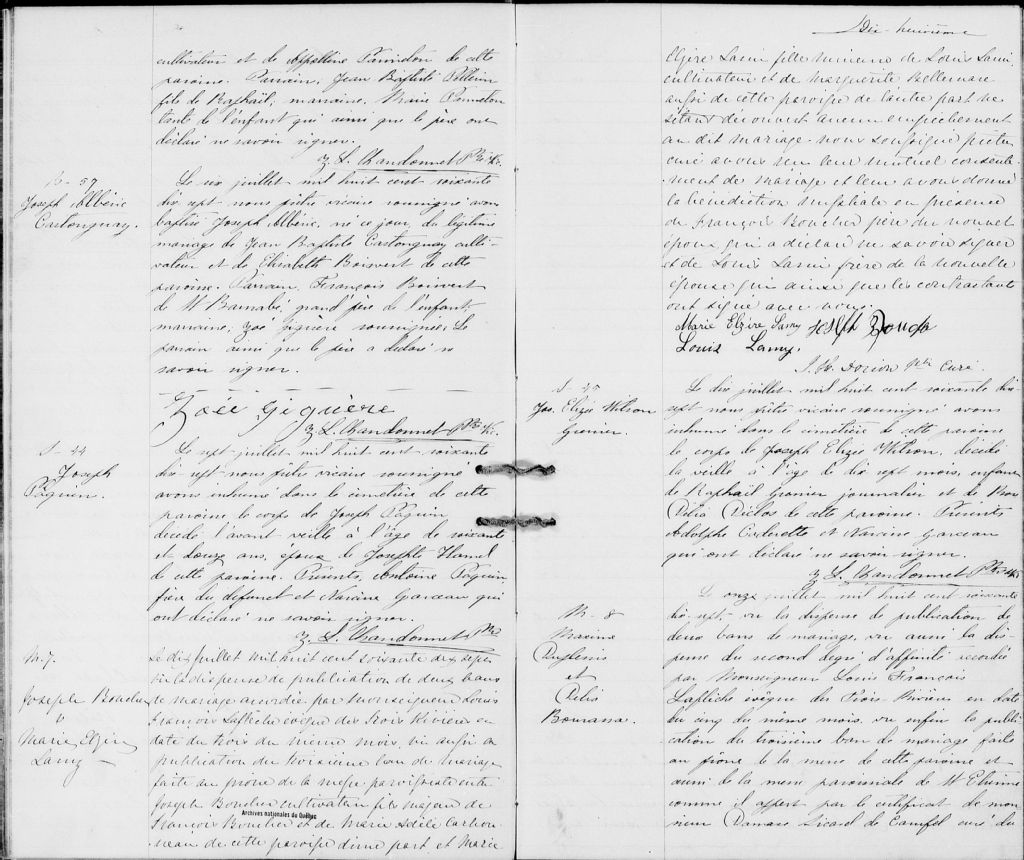 cultivateur et de Appolline Panneton de cette
paroisse. Parrain, Jean Baptiste Pellerin
fils de Raphaël; marraine, Marie Panneton
tante de l'enfant qui ainsi que le père ont
déclaré ne savoir signer.
Z. L. Chandonnet Ptre Vic.
B-59
Joseph Albéric
Castonguay.
Le six juillet mil huit cent soixante
dix sept nous prêtre vicaire soussigné avons
baptisé Joseph Albéric, né ce jour, du légitime
mariage de Jean Baptiste Castonguay culti-
vateur et de Elisabeth Boisvert de cette
paroisse. Parrain, François Boisvert
de St Barnabé, grand'père de l'enfant,
marraine, Zoé Giguère soussignée. Le
parrain ainsi que le père a déclaré ne
savoir signer.
Zoée Giguère
Z. L. Chandonnet Ptre Vic.
S-44
Joseph
Paquin.
Le sept juillet mil huit cent soixante
dix sept nous prêtre vicaire soussigné
avons inhumé dans le cimetière de cette
paroisse le corps de Joseph Paquin
décédé l'avant veille à l'âge de soixante
et douze ans, époux de Josephte Hamel
de cette paroisse. Présents, Antoine Paquin
frère du défunct et Narcisse Garceau qui
ont déclaré ne savoir signer.
Z. L. Chandonnet Ptre
M-7.
Joseph Boucher
&
Marie Elzire
Lamy
Le dix juillet mil huit cent soixante dix sept
vu la dispense de publication de deux bans
de mariage accordée par Monseigneur Louis
François Laflèche évêque des Trois Rivières en
date du trois du même mois, vu aussi la
publication du troisième ban de mariage
faite au prône de la messe paroissiale entre
Joseph Boucher cultivateur fils majeur de
François Boucher et de Marie Adéle Carbon-
neau de cette paroisse d'une part, et Marie
Archives nationales du Québec
Dix-huitième
Elzire Lami fille mineure de Louis Lami
cultivateur et de Marguerite Bellemare
aussi de cette paroisse de l'autre part ne
s'étant découvert aucun empêchement
au dit mariage nous soussigné prêtre
curé avons reçu leur mutuel consente-
ment de mariage et leur avons donné
la bénédiction nuptiale en présence
de François Boucher père du nouvel
époux qui a déclaré ne savoir signer
et de Louis Lami frère de la nouvelle
épouse qui ainsi que les contractants
ont signé avec nous.
Marie Elzire Lamy Joseph
Louis Lamy.
J. H. Dorion Ptre Curé.
S-45
Jos. Elizée Wilson
Grenier.
Le dix juillet mil huit cent soixante dix-
sept nous prêtre vicaire soussigné avons
inhumé dans le cimetière de cette paroisse
le corps de Joseph Elizée Wilson, décédé
la veille à l'âge de dix sept mois, enfant
de Raphaël Grenier journalier et de
Délia Duclos de cette paroisse. Présents
Adolphe et Narcisse Garceau
qui ont déclaré ne savoir signer.
Z. L. Chandonnet Ptre Vic
M-8
Maxime
Duplessis
et
Délia
Bourassa.
Le onze juillet mil huit cent soixante
dix-sept, vu la dispense de publication de
deux bans de mariage, vu aussi la dis-
pense du second degré d'affinité accordée
par Monseigneur Louis François
Laflèche évêque des Trois Rivières en date
du cinq du même mois, vu enfin la publi-
cation du troisième ban de mariage faite
au prône de la messe de cette paroisse et
aussi de la messe paroissiale de St Etienne
comme il appert par le certificat de mon-
sieur Damase Sicard de Carufel curé du